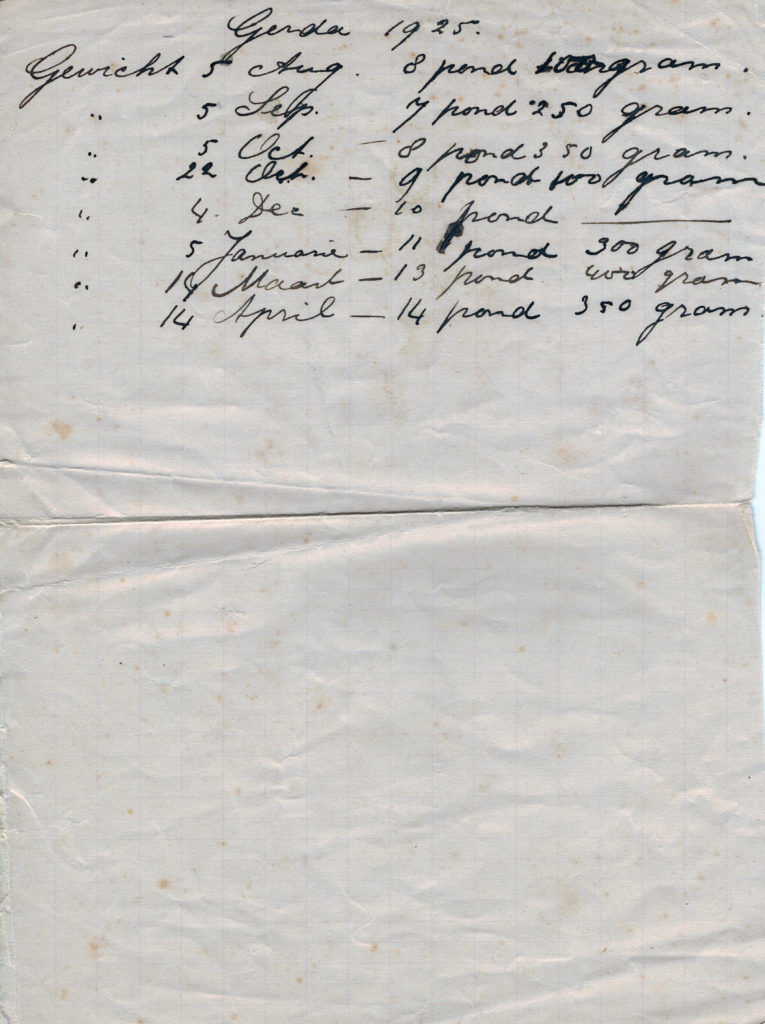 Gerda 1925.
Gewicht 5 Aug. 8 pond 100 gram.
" 5 Sep. 7 pond 250 gram.
" 5 Oct. – 8 pond 350 gram.
" 22 Oct. – 9 pond 100 gram
" 4. Dec – 10 pond ———
" 5 Januarie – 11 pond 300 gram
" 14 Maart – 13 pond 400 gram
" 14 April – 14 pond 350 gram.